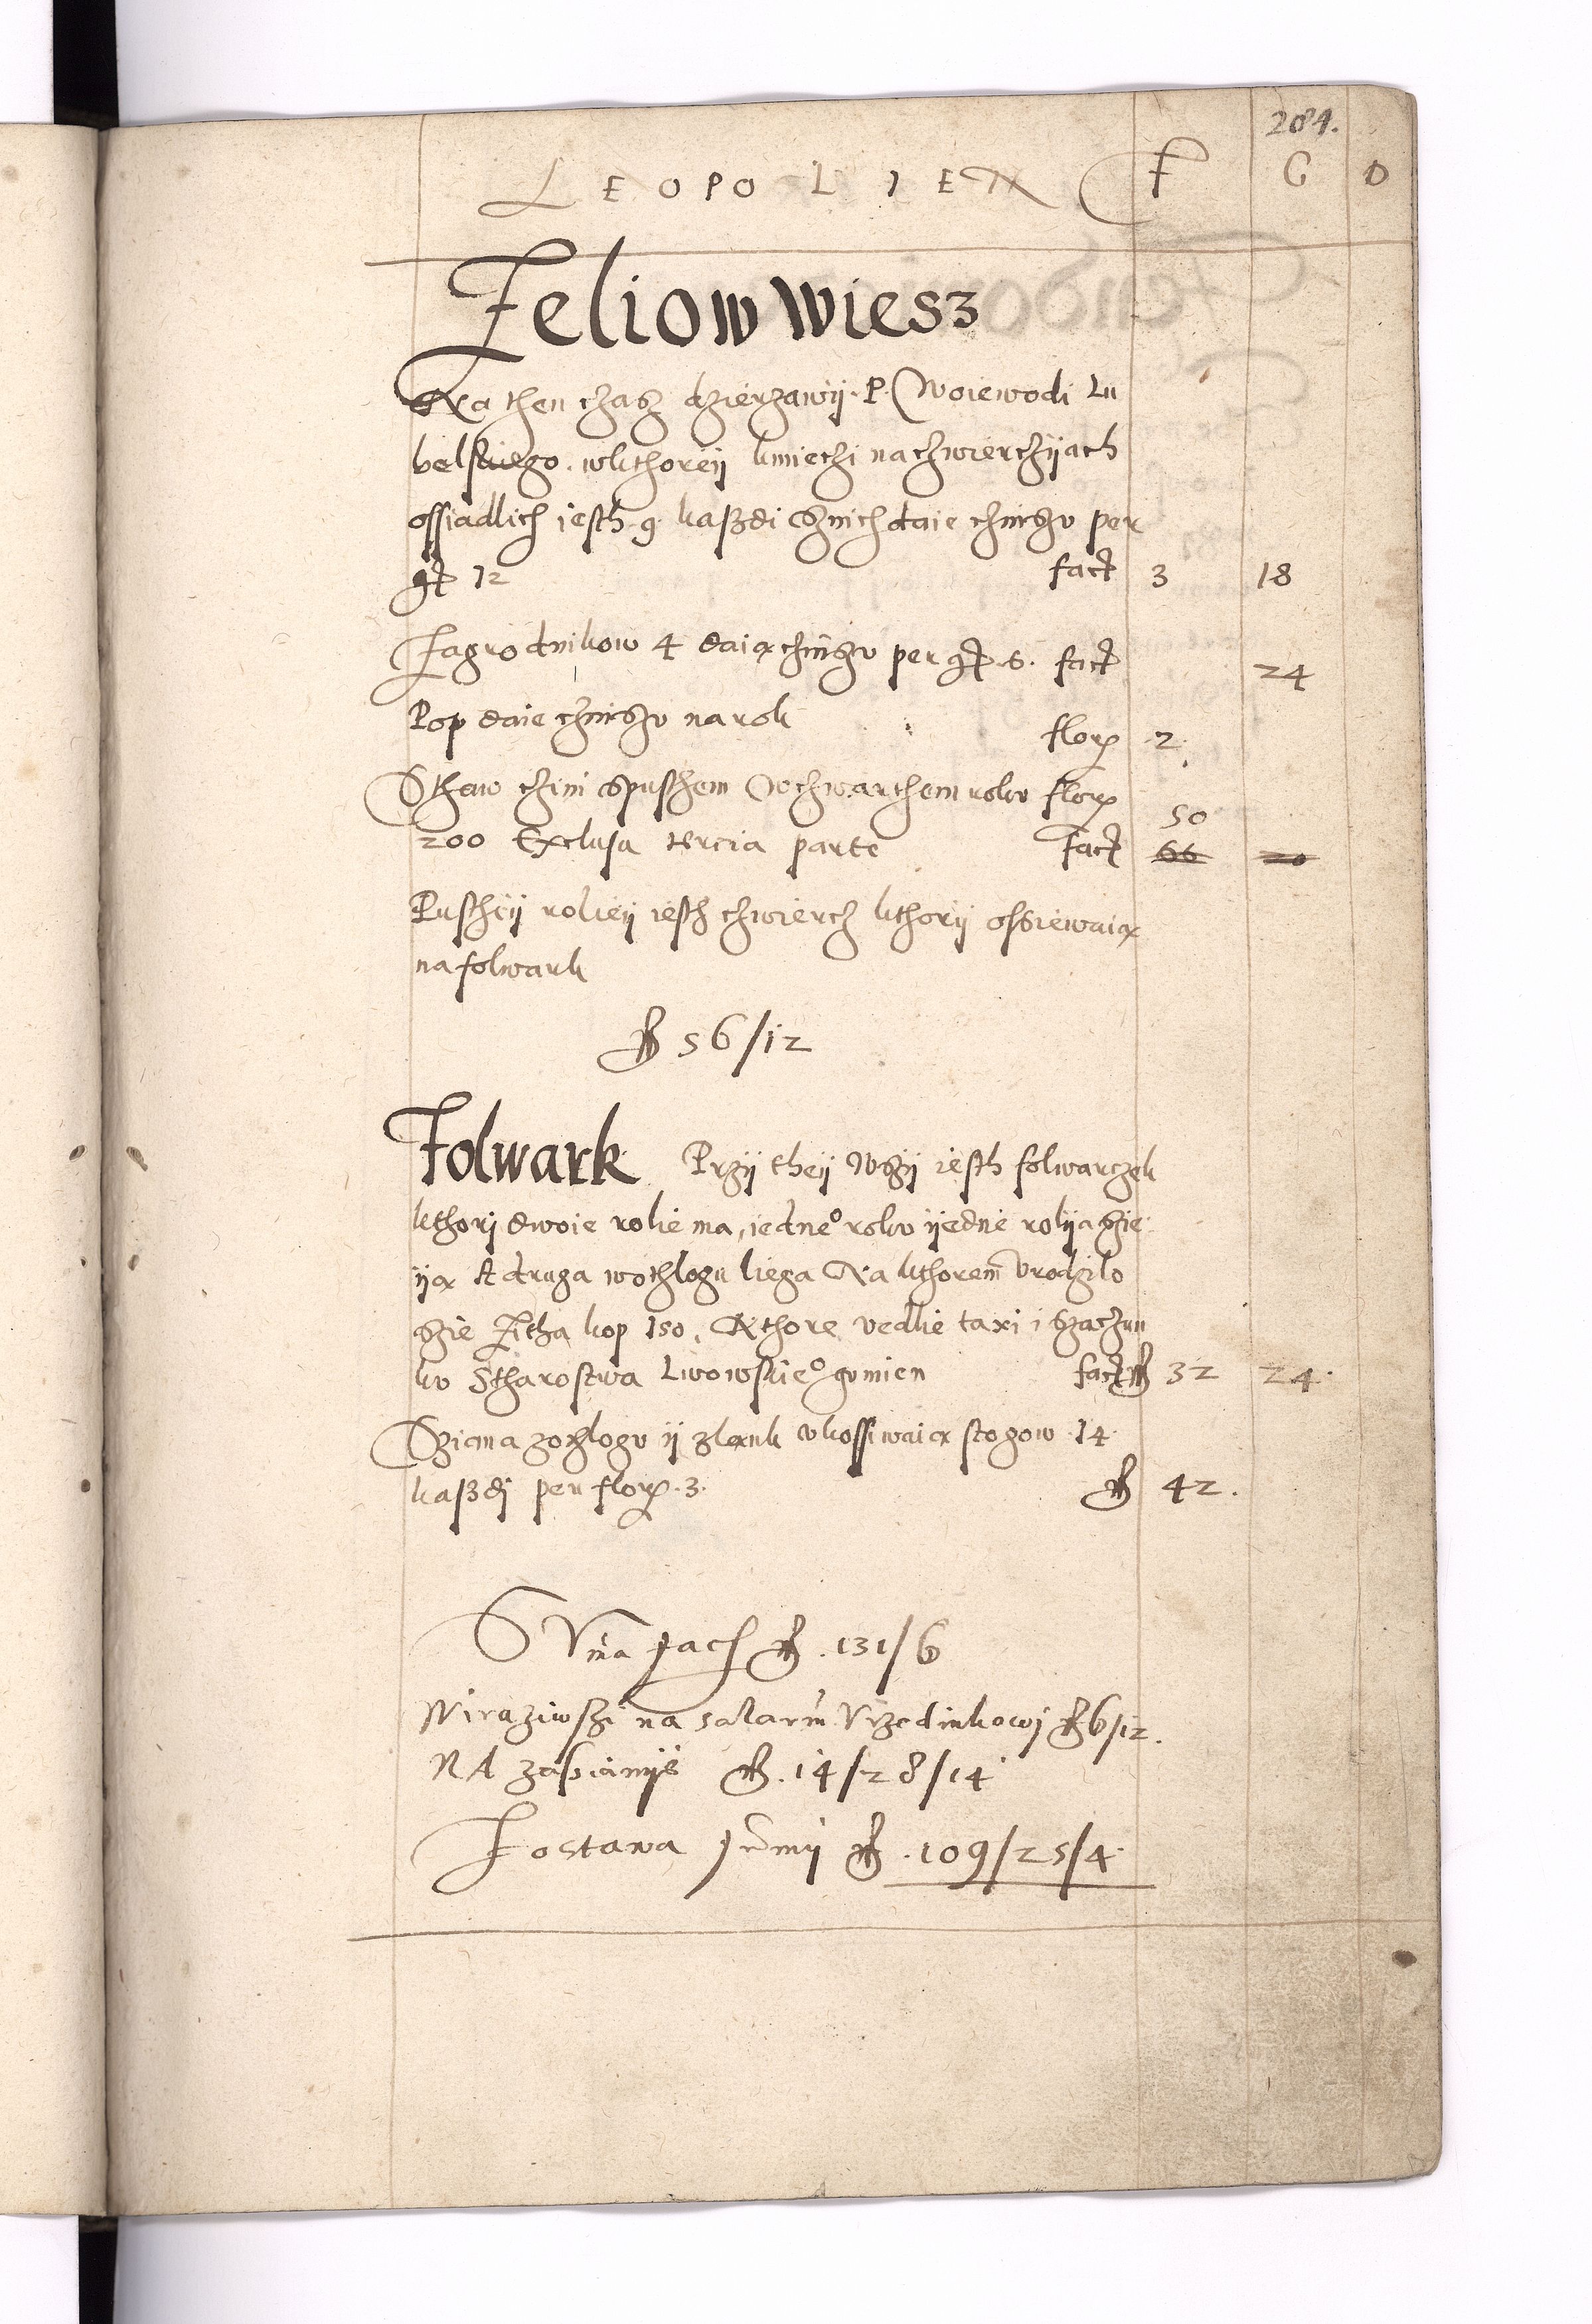 284.
LEOPOLIEN F G D
Zeliow Wiesz
Na then czasz dzierzawÿ. P. Woiewodi Lu
belskiego. wkthorëÿ kmiechi na czwierczÿach
ossiadlich iesth 9 kaßdi sznich daie czinszu per
gr 12 fact 3 18
Zagrodnikow 4 daia czinszu per gr 6. fact 24
Pop daie czinszu na rok flor 2.
Sthaw czini spusthem w czwarthem roku flor
200 Exclusa tercia parte fact 50 66 20
Pusthëÿ rolieÿ iesth czwiercz kthorÿ ossiewaia
na folwark
fl 56/12
Folwark Przÿ theÿ Wszÿ iesth folwarczek
kthorj dwoie rolie ma, iedneo roku ÿedne rolÿa szie
ÿa A druga wothlogu liega Na kthorem vrodzilo
szie Zitha kop 150. Kthore vedlie taxi i szaczun
ku Stharostwa Lwowskieo gumien fact fl 32 24.
Sziana zothlogu ÿ zlank vkossiwaia stogow 14
kaßdj per flor. 3. fl 42.
SVma facit fl. 131/6
Wiraziwszi na salarm Vrzednikowj fl 6/12.
NA zasianÿe fl. 14/28/14
Zostawa summÿ fl. 109/25/4.